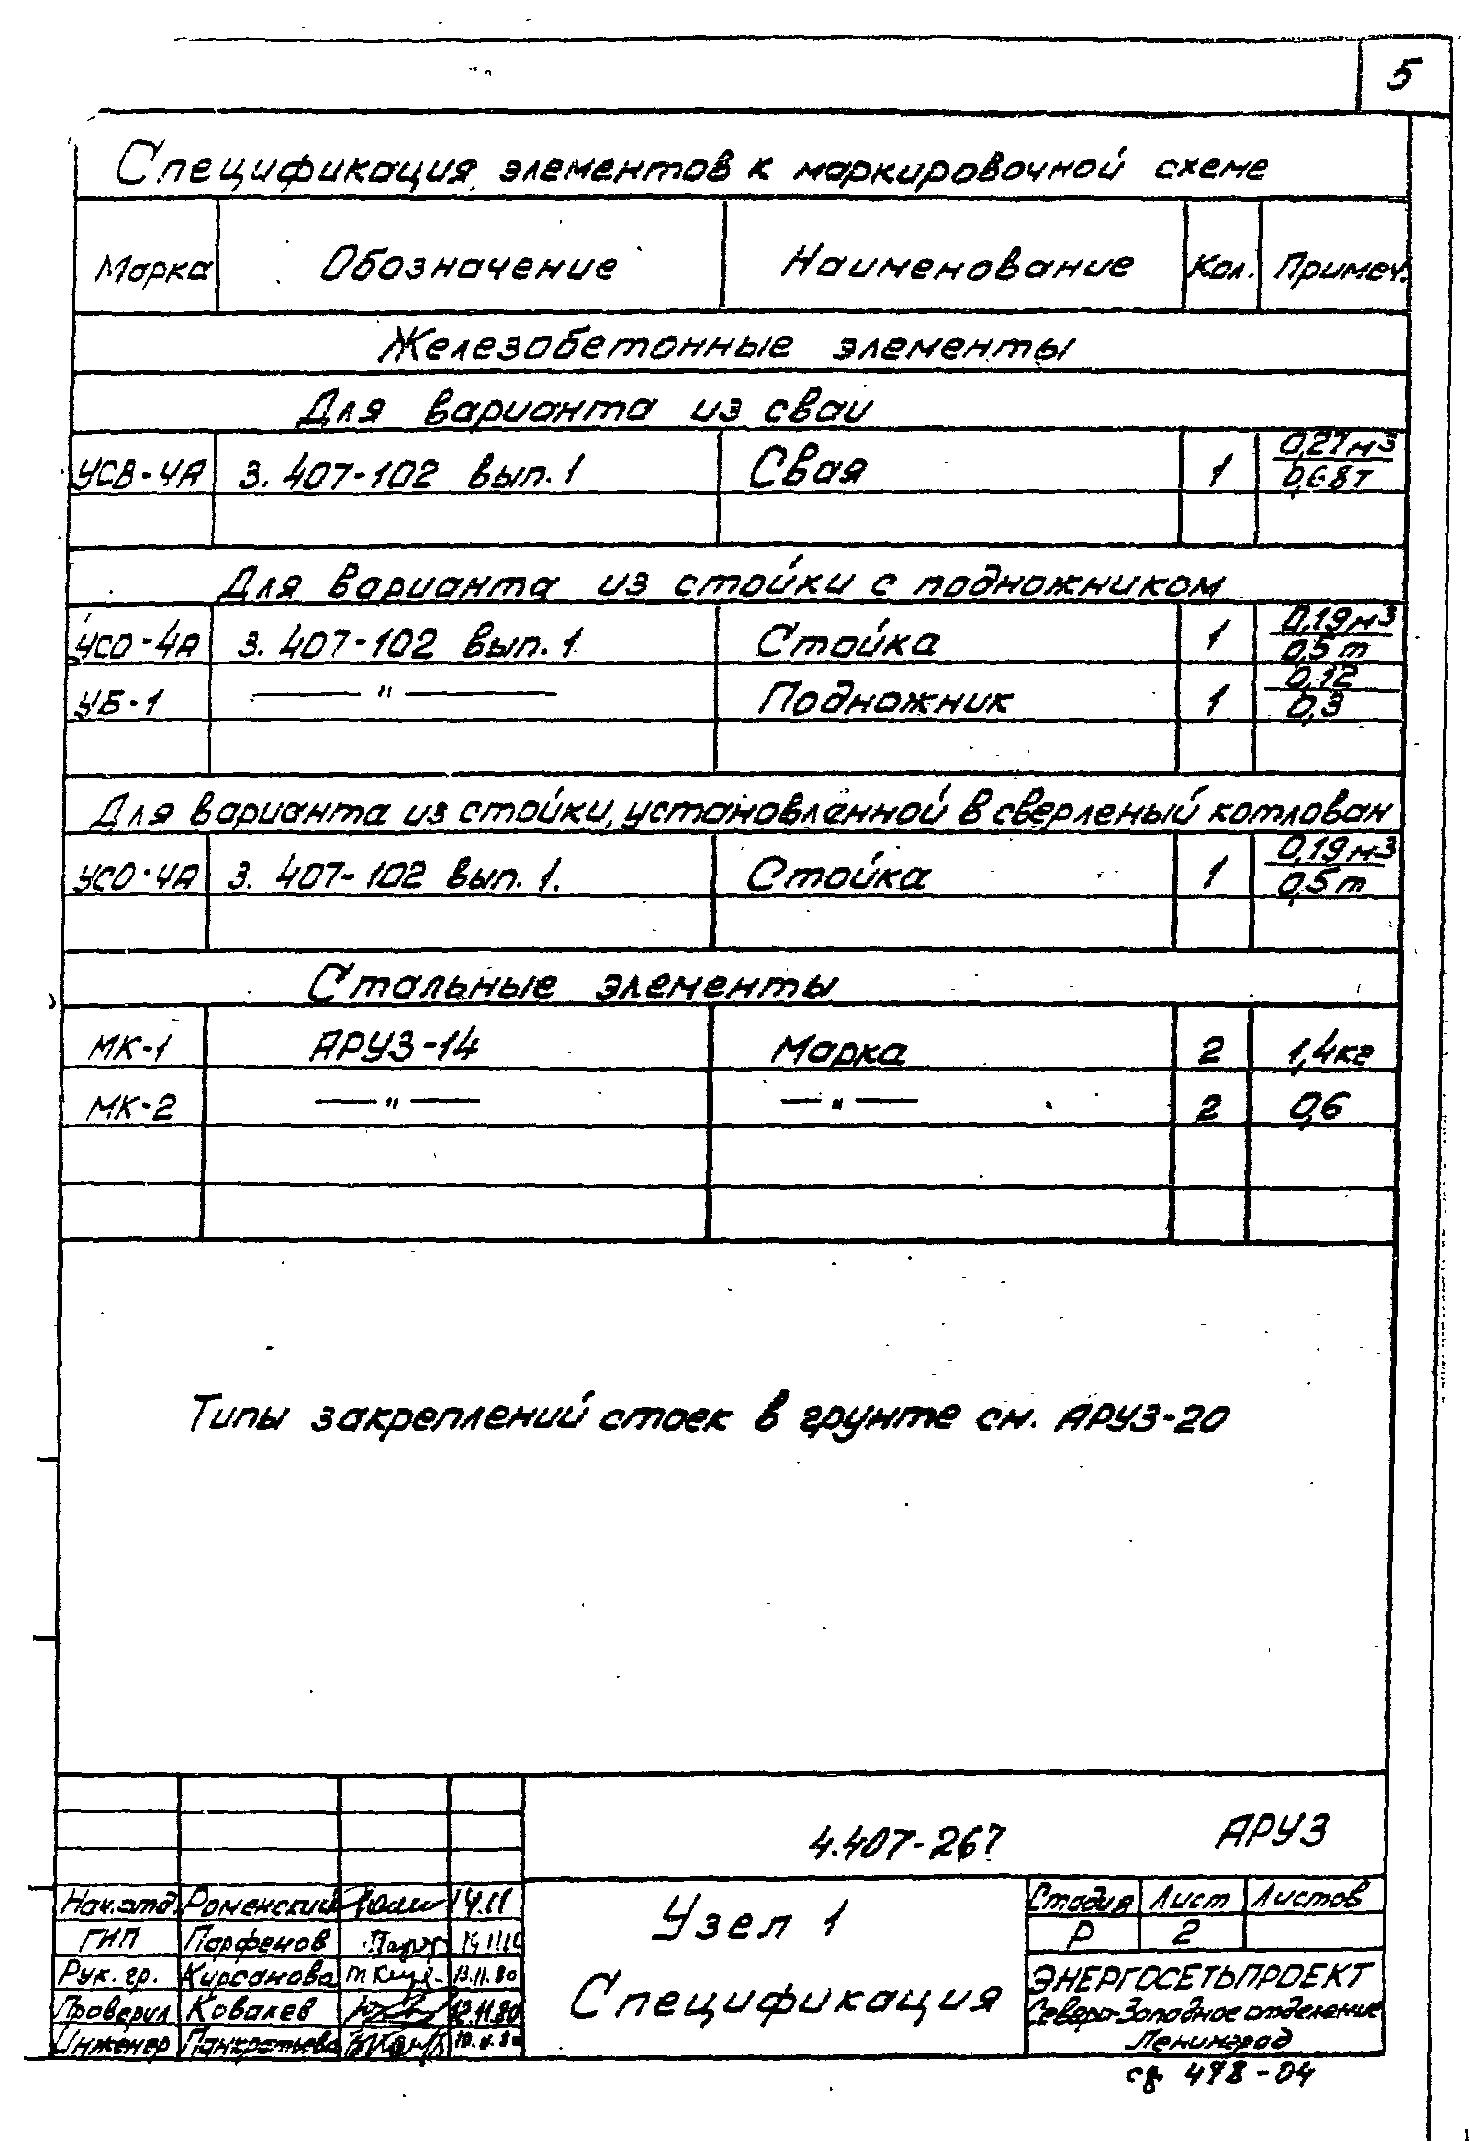 5
Спецификация элементов к маркировочной схеме
Марка Обозначение Наименование Кол. Примеч.
Железобетонные элементы
Для варианта из сваи
УСВ-4А 3.407-102 вып.1 Свая 1 0,27м³ 0,68т
Для варианта из стойки с подножником
УСО-4А 3.407-102 вып.1 Стойка 1 0,19м³ 0,5т
УБ-1 —"— Подножник 1 0,12 0,3
Для варианта из стойки, установленной в сверленый котлован
УСО-4А 3.407-102 вып.1. Стойка 1 0,19м³ 0,5т
Стальные элементы
МК-1 АРУЗ-14 Марка 2 1,4кг
МК-2 —"— —"— 2 0,6
Типы закреплений стоек в грунте см. АРУЗ-20
4.407-267 АРУЗ
Нач.отд. Роменский 14.11
ГИП Парфенов
Рук. гр. Кирсанова 13.11.80
Проверил Ковалев 12.11.80
Инженер Панкратьева
Узел 1
Спецификация
Стадия Лист Листов
Р 2
ЭНЕРГОСЕТЬПРОЕКТ
Северо-Западное отделение
Ленинград
сф 498-04